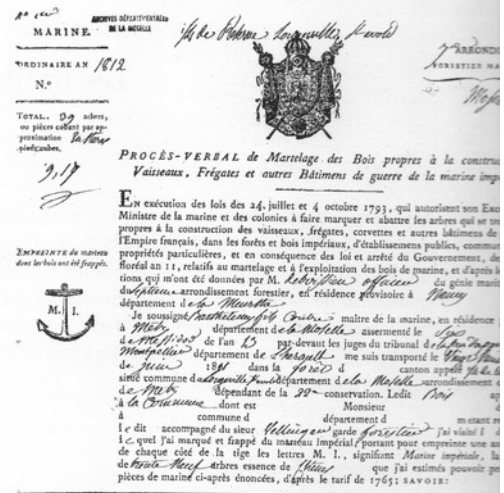 MARINE.
ARCHIVES DÉPARTEMENTALES
DE LA MOSELLE
de Réserve Longeville, St avold
ORDINAIRE AN 1812
N.º
ARROND
FORESTIER MA
TOTAL. 39 arbres,
ou pièces cubant par ap-
proximation
pieds cubes.
PROCÈS-VERBAL de Martelage des Bois propres à la constru
Vaisseaux, Frégates et autres Bâtimens de guerre de la marine imp
EN exécution des lois des 24. juillet et 4 octobre 1793, qui autorisent son Exc
Ministre de la marine et des colonies à faire marquer et abattre les arbres qui se tro
propres à la construction des vaisseaux, frégates, corvettes et autres bâtimens de
l'Empire français, dans les forêts et bois impériaux, d'établissemens publics, commu
propriétés particulières, et en conséquence des lois et arrêté du Gouvernement, de
floréal an 11, relatifs au martelage et à l'exploitation des bois de marine, et d'après
tions qui m'ont été données par M. officier du génie marit
du arrondissement forestier, en résidence provisoire à Nancy
département de la Moselle
EMPREINTE du marteau
dont les bois ont été frappés.
M. I.
Je soussigné Barthelemy fils maître de la marine, en résidence
à Metz département de la Moselle assermenté le Six
de Messidor de l'an 13 par-devant les juges du tribunal de
Montpellier département de l'herault me suis transporté le
de juin 1811 dans la forêt d canton appelé
situé commune de Longeville département de la Moselle arrondissement
de Metz dépendant de la 22e conservation. Ledit Bois ap
à la Commune dont est Monsieur
à commune d département d m etant re
le dit accompagné du sieur garde forestier j'ai visité l
le quel j'ai marqué et frappé du marteau impérial, portant pour empreinte une an
de chaque côté de la tige les lettres M. I., signifiant Marine impériale, la
de trente Neuf arbres essence de Chêne que j'ai estimés pouvoir p
pièces de marine ci-après énoncées, d'après le tarif de 1765; SAVOIR: